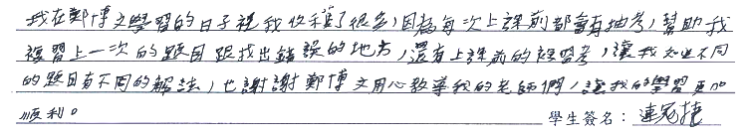 我在鄭博文學習的日子裡我收穫了很多,因為每次上課前都會有抽考,幫助我
複習上一次的題目跟找出錯誤的地方,還有上課前的複習考,讓我知道不同
的題目有不同的解法,也謝謝鄭博文用心教導我的老師們,讓我的學習更加
順利。
學生簽名:連冠捷